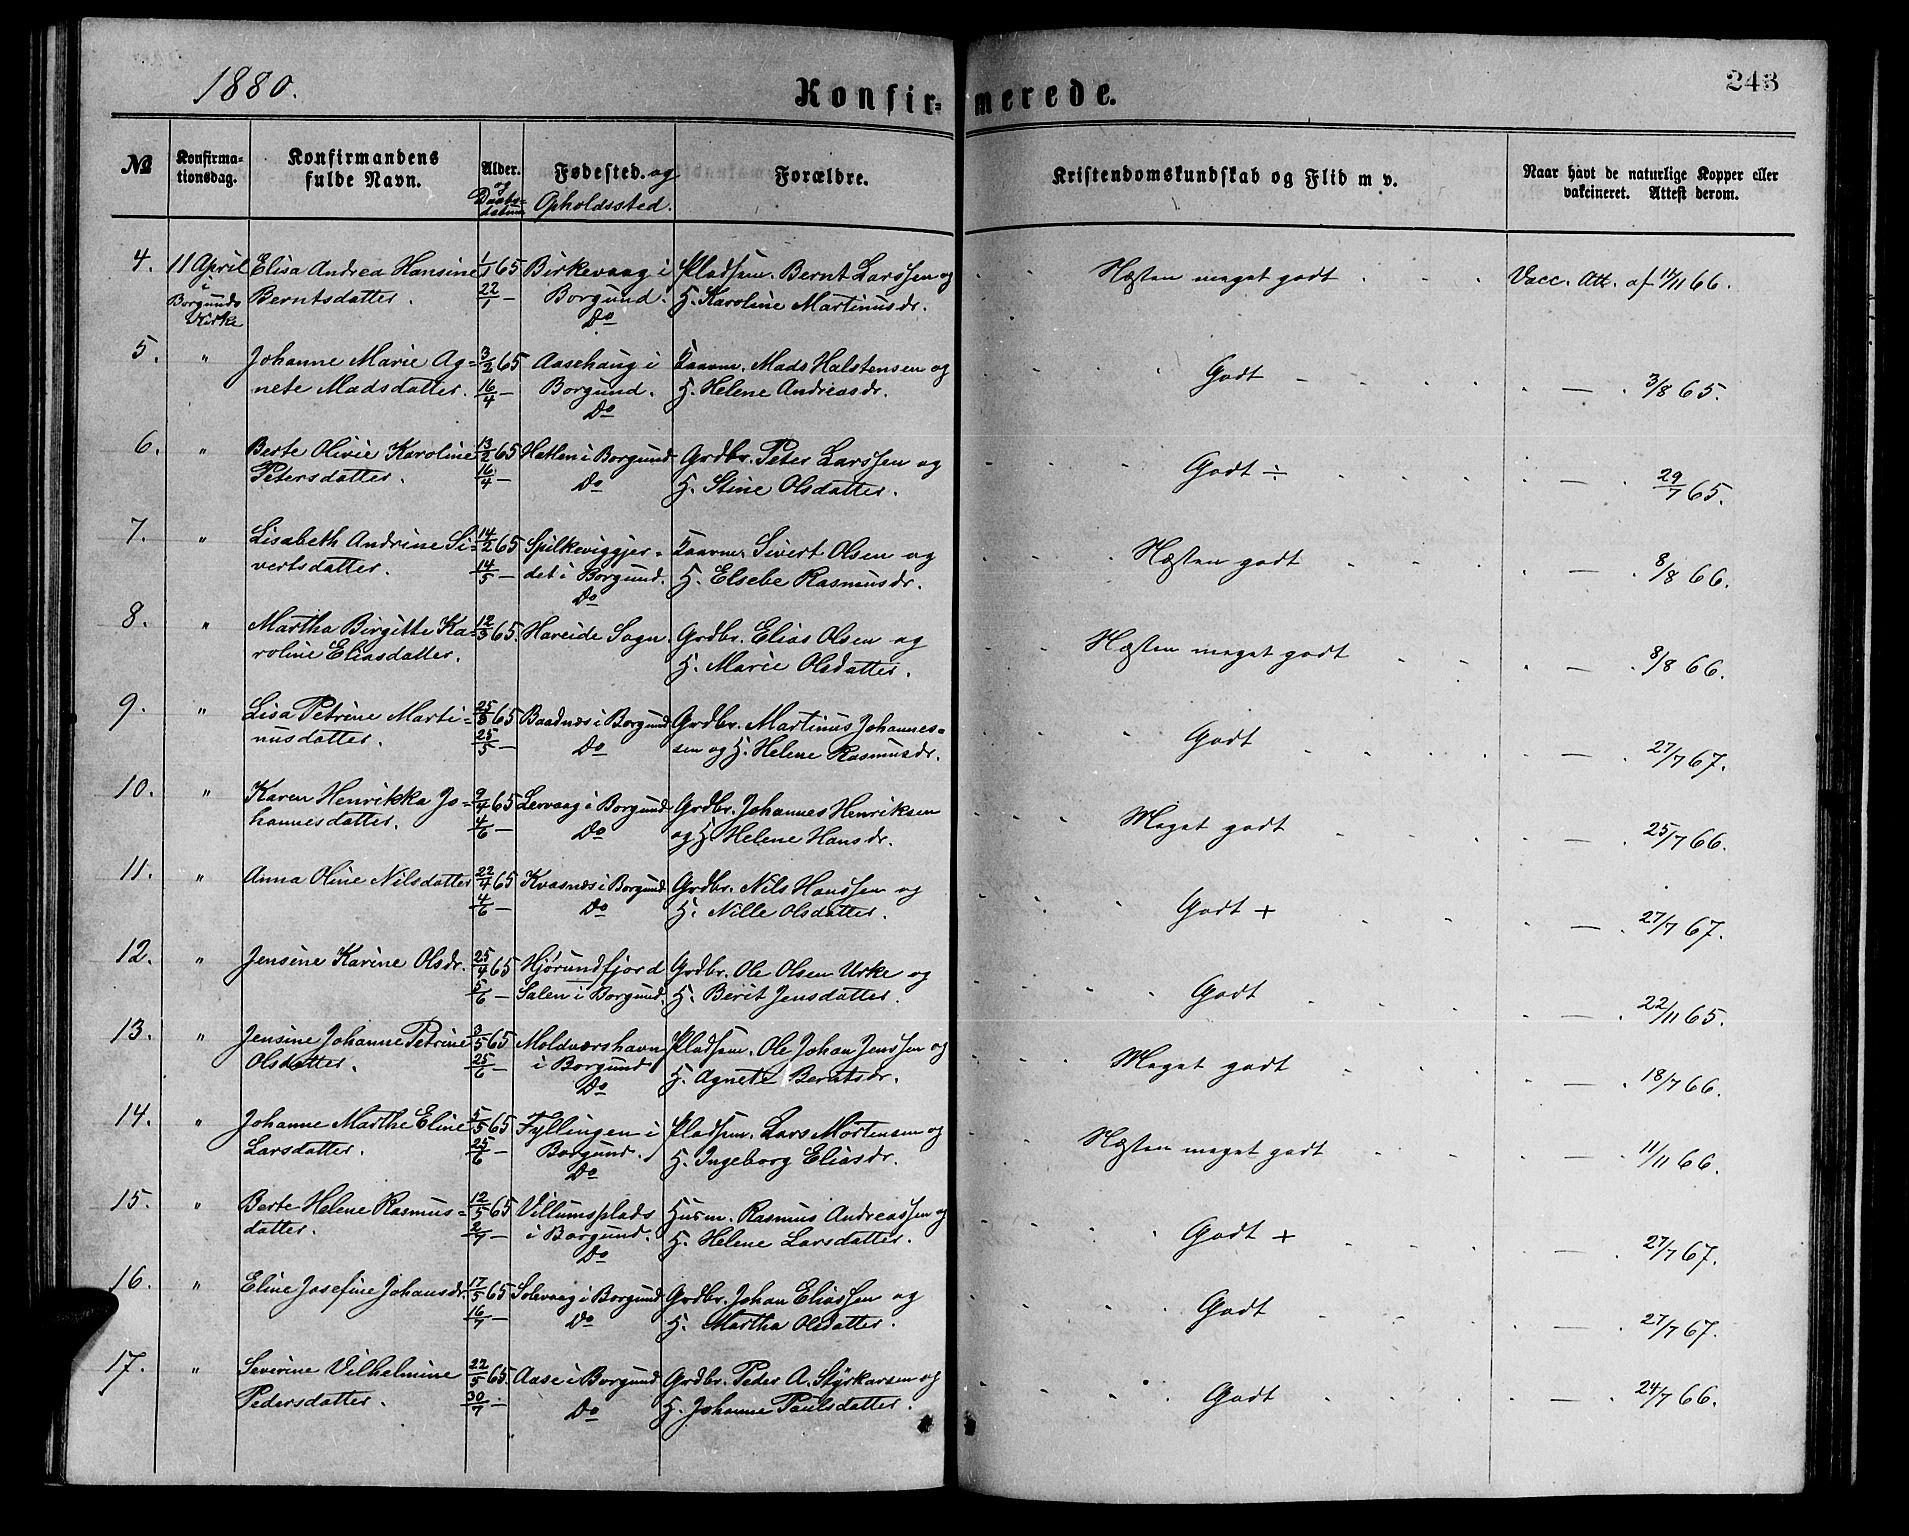 1880.
Konfir=merede.
243
№
Konfirma-
tionsdag.
Konfirmandens
fulde Navn.
Alder.
og
Daabs-
datum
Fødested. og
Opholdssted.
Forældre.
Kristendomskundskab og Flid m v.
Naar havt de naturlige Kopper eller
vakcineret. Attest derom.
4. 11 April Elisa Andrea Hansine 1/1 65 Birkevaag i Pladsm. Bernt Larssen og Næsten meget godt Vacc. Att. af 14/11 66.
i Borgunds Kirke Berntsdatter. 22/1 — Borgund. H. Karoline Martinusdr.
Do
5. " Johanne Marie Ag= 3/2 65 Aasehaug i Laavm. Mads Halstensen og Godt — 3/8 65.
nete Madsdatter. 16/4 — Borgund. H. Helene Andreasdr.
Do
6. " Berte Olivie Karoline 13/2 65 Hatlen i Borgund Grdbr. Peter Larssen og Godt ÷ — 29/7 65.
Petersdatter. 16/4 — Do H. Stine Olsdatter.
7. " Lisabeth Andrine Si= 14/2 65 Spilkeviggjer= Laavm. Sivert Olsen og Næsten godt — 8/8 66.
vertsdatter. 14/5 — det i Borgund. H. Elsebe Rasmusdr.
Do
8. " Martha Birgitte Ka= 12/3 65. Hareide Sogn. Grdbr. Elias Olsen og Næsten meget godt — 8/8 66.
roline Eliasdatter. H. Marie Olsdatter.
9. " Lisa Petrine Marti= 25/3 65 Baadnæs i Borgund Grdbr. Martinus Johannes= Godt — 27/7 67.
nusdatter. 25/5 — Do sen og H. Helene Rasmusdr.
10. " Karen Henrikka Jo= 9/4 65 Lervaag i Borgund Grdbr. Johannes Henriksen Meget godt — 25/7 66.
hannesdatter. 4/6 — Do og H. Helene Hansdr.
11. " Anna Oline Nilsdatter 22/4 65 Kvasnæs i Borgund Grdbr. Nils Hanssen og Godt + — 27/7 67.
4/6 — Do H. Nille Olsdatter.
12. " Jensine Karine Olsdr. 25/4 65 Hjørundfjord Grdbr. Ole Olsen Urke og Godt — 22/11 65.
5/6 — Salen i Borgund. H. Berit Jensdatter.
13. " Jensine Johanne Petrine 3/5 65 Moldværshavn Pladsm. Ole Johan Jenssen og Meget godt — 18/7 66.
Olsdatter. 25/6 — i Borgund H. Agnete Berntsdr.
Do
14. " Johanne Marthe Eline 5/5 65 Fyllingen i Pladsm. Lars Mortensen og Næsten meget godt — 11/11 66.
Larsdatter. 25/6 — Borgund. H. Ingeborg Eliasdr.
Do
15. " Berte Helene Rasmus= 12/5 65 Villumsplads Husm. Rasmus Andreassen og Godt + — 27/7 67.
datter. 2/7 — i Borgund. H. Helene Larsdatter.
Do
16. " Eline Josefine Johansdr. 17/5 65 Solevaag i Borgund Grdbr. Johan Eliassen og Godt — 27/7 67.
16/7 — Do H. Martha Olsdatter.
17. " Severine Vilhelmine 22/5 65. Aase i Borgund Grdbr. Peder A. Styrkarsen og Godt — 24/7 66.
Pedersdatter. 30/7 — Do H. Johanne Paulsdatter.